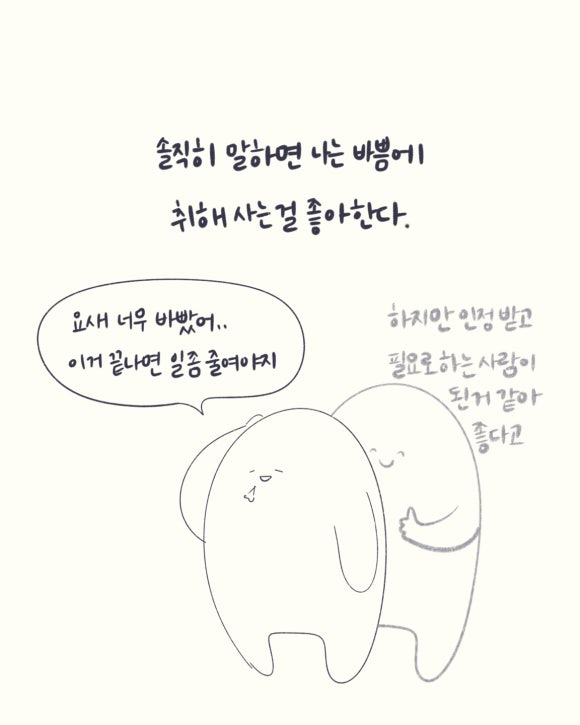 솔직히 말하면 나는 바쁨에
취해 사는걸 좋아한다.
요새 너무 바빴어..
이거 끝나면 일좀 줄여야지
하지만 인정 받고
필요로 하는 사람이
된거 같아
좋다고